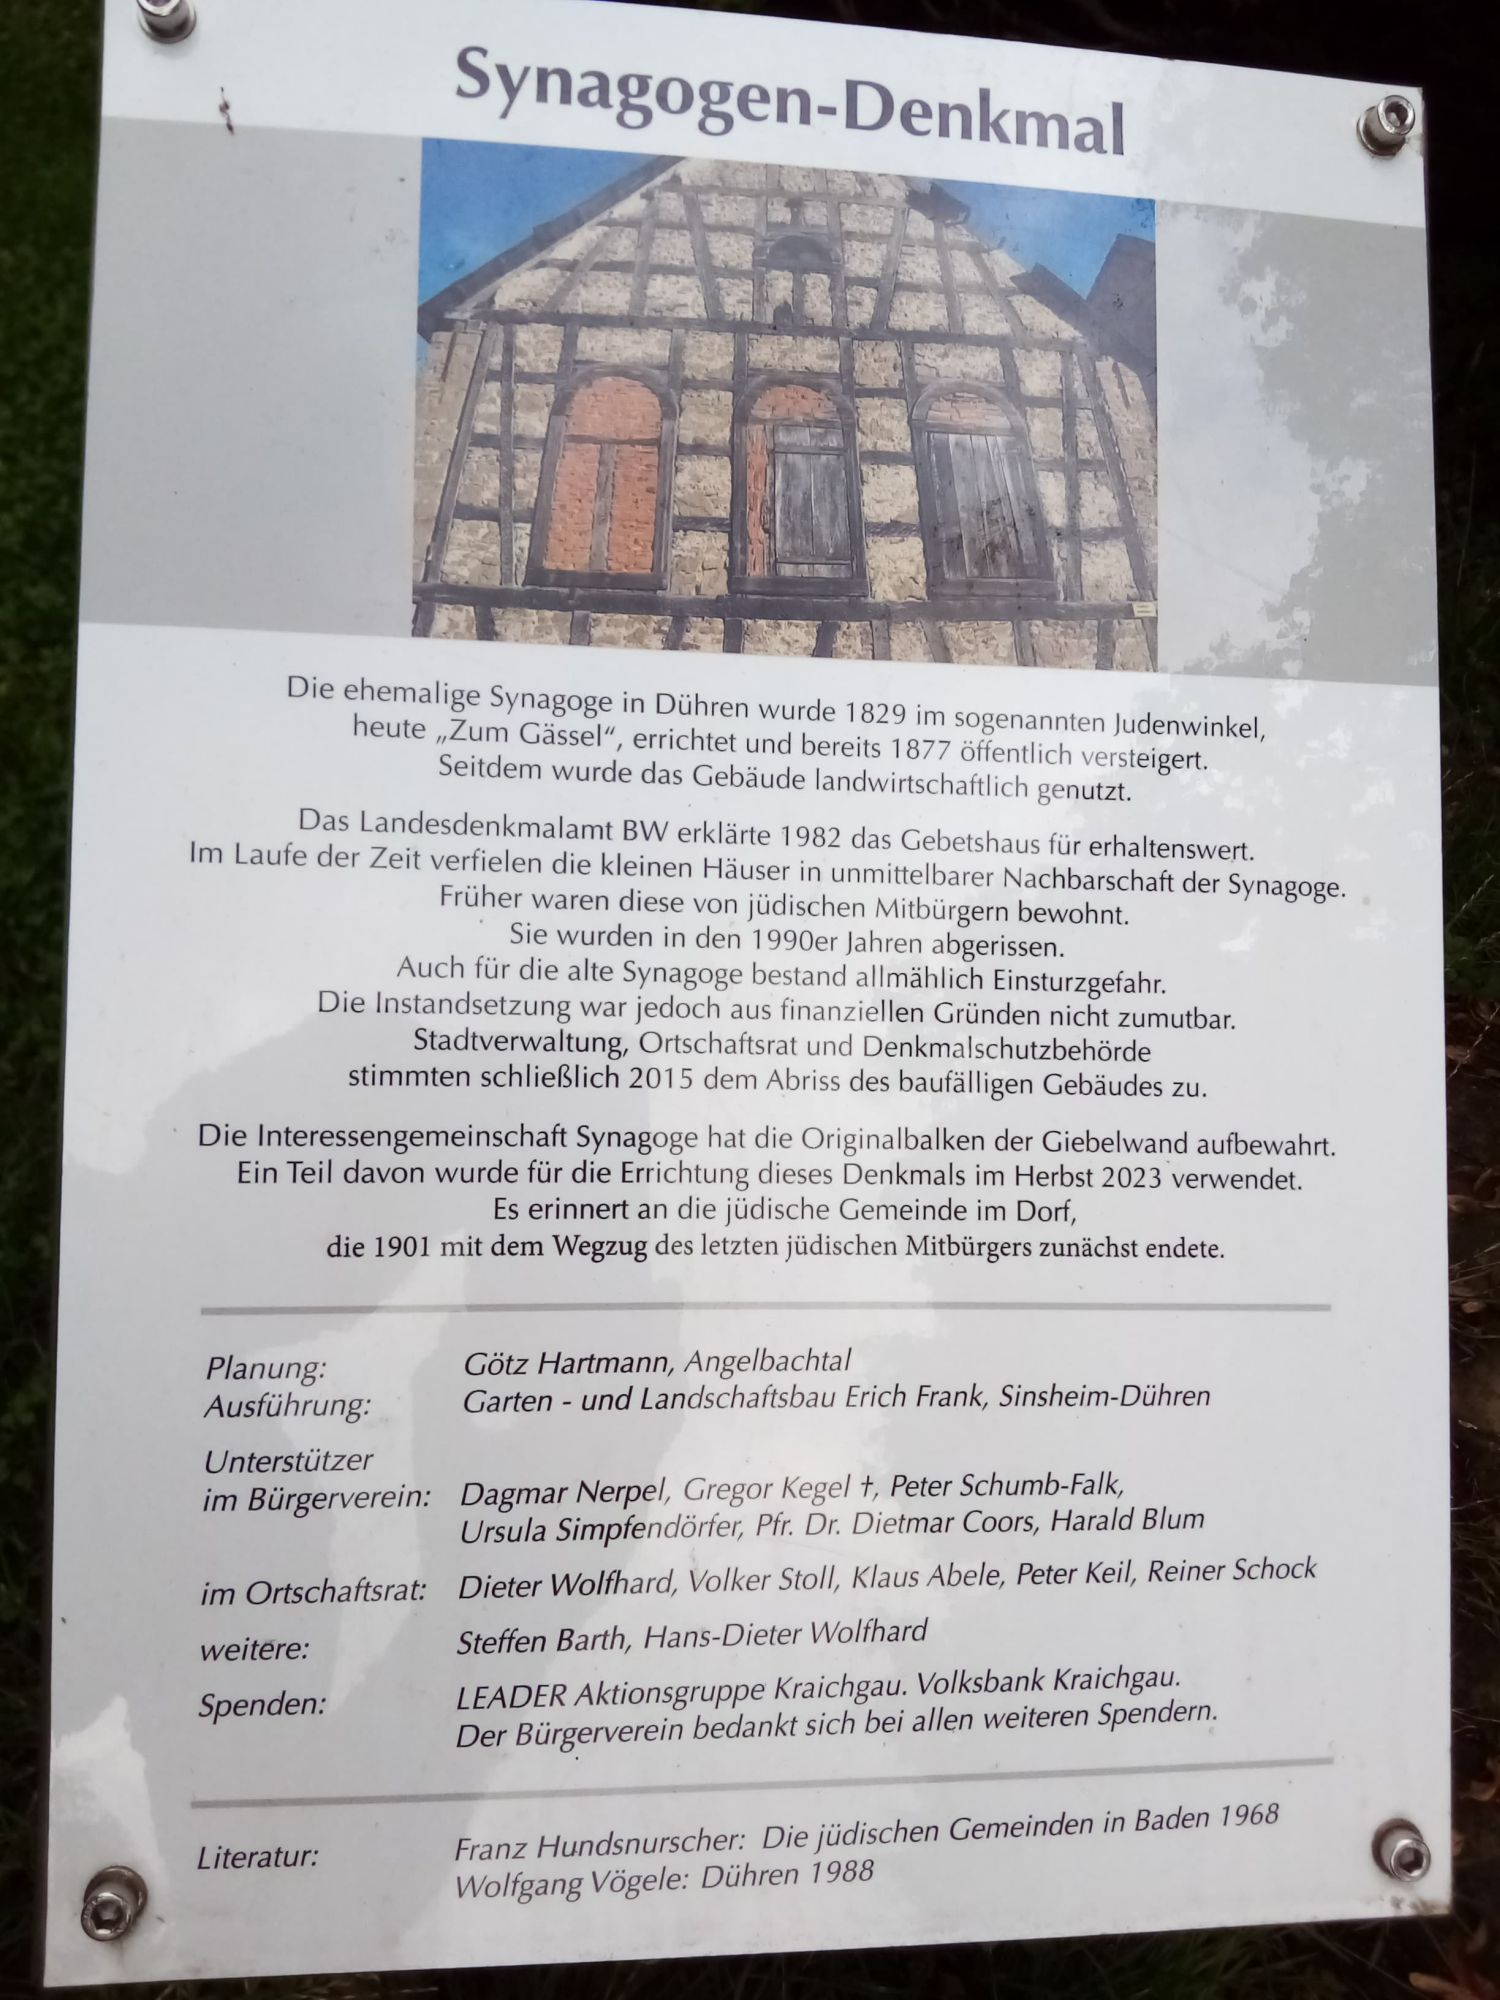 Synagogen-Denkmal
Die ehemalige Synagoge in Dühren wurde 1829 im sogenannten Judenwinkel,
heute „Zum Gässel“, errichtet und bereits 1877 öffentlich versteigert.
Seitdem wurde das Gebäude landwirtschaftlich genutzt.
Das Landesdenkmalamt BW erklärte 1982 das Gebetshaus für erhaltenswert.
Im Laufe der Zeit verfielen die kleinen Häuser in unmittelbarer Nachbarschaft der Synagoge.
Früher waren diese von jüdischen Mitbürgern bewohnt.
Sie wurden in den 1990er Jahren abgerissen.
Auch für die alte Synagoge bestand allmählich Einsturzgefahr.
Die Instandsetzung war jedoch aus finanziellen Gründen nicht zumutbar.
Stadtverwaltung, Ortschaftsrat und Denkmalschutzbehörde
stimmten schließlich 2015 dem Abriss des baufälligen Gebäudes zu.
Die Interessengemeinschaft Synagoge hat die Originalbalken der Giebelwand aufbewahrt.
Ein Teil davon wurde für die Errichtung dieses Denkmals im Herbst 2023 verwendet.
Es erinnert an die jüdische Gemeinde im Dorf,
die 1901 mit dem Wegzug des letzten jüdischen Mitbürgers zunächst endete.
Planung: Götz Hartmann, Angelbachtal
Ausführung: Garten - und Landschaftsbau Erich Frank, Sinsheim-Dühren
Unterstützer
im Bürgerverein: Dagmar Nerpel, Gregor Kegel †, Peter Schumb-Falk,
Ursula Simpfendörfer, Pfr. Dr. Dietmar Coors, Harald Blum
im Ortschaftsrat: Dieter Wolfhard, Volker Stoll, Klaus Abele, Peter Keil, Reiner Schock
weitere: Steffen Barth, Hans-Dieter Wolfhard
Spenden: LEADER Aktionsgruppe Kraichgau. Volksbank Kraichgau.
Der Bürgerverein bedankt sich bei allen weiteren Spendern.
Literatur: Franz Hundsnurscher: Die jüdischen Gemeinden in Baden 1968
Wolfgang Vögele: Dühren 1988